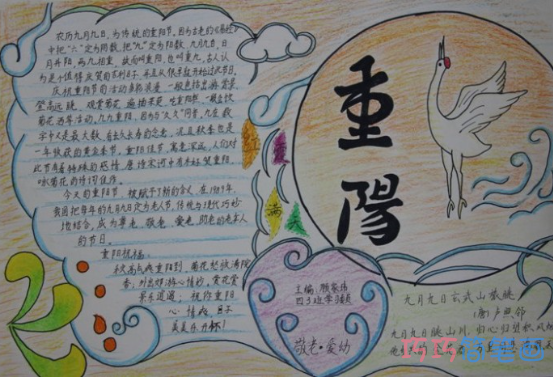 农历九月九日,为传统的重阳节。因为古老的《易经》
中把“六”定为阴数,把“九”定为阳数,九月九日,日
月并阳,两九相重,故而叫重阳,也叫重九,古人认
为是个值得庆贺的吉利日子,并且从很早就开始过此节日。
庆祝重阳节的活动多彩浪漫,一般包括出游赏景、
登高远眺、观赏菊花、遍插茱萸、吃重阳糕、
菊花酒等活动。九九重阳,因为与“久久”同音,九在数
字中又是最大数,有长久长寿的含意,况且秋季也是
一年收获的黄金季节,重阳佳节,寓意深远,人们对
此节有着特殊的感情,唐诗宋词中有不少贺重阳,
咏菊花的诗词佳作。
今天的重阳节,被赋予了新的含义,在1989年,
我国把每年的九月九日定为老人节,传统与现代巧妙
地结合,成为尊老、敬老、爱老、助老的老年人
的节日。
重阳祝福
秋高气爽重阳到,菊花怒放满院
香;
乐乐逍遥,祝你重阳
心情好,日子
美美乐开怀!
红霞
满天
重
陽
主编:
四3班学
敬老·爱幼
九月九日玄武山旅眺
(唐)卢照邻
九月九日眺山川,归心归望积风烟
巧巧简笔画